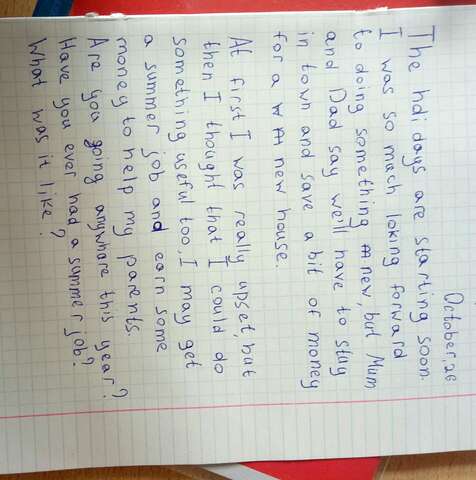 October, 26
The holidays are starting soon.
I was so much loking forward
to doing something new, but Mum
and Dad say we'll have to stay
in town and save a bit of money
for a new house.
At first I was really upset, but
then I thought that I could do
something useful too. I may get
a summer job and earn some
money to help my parents.
Are you going anywhare this year?
Have you ever had a summer job?
What was it like?